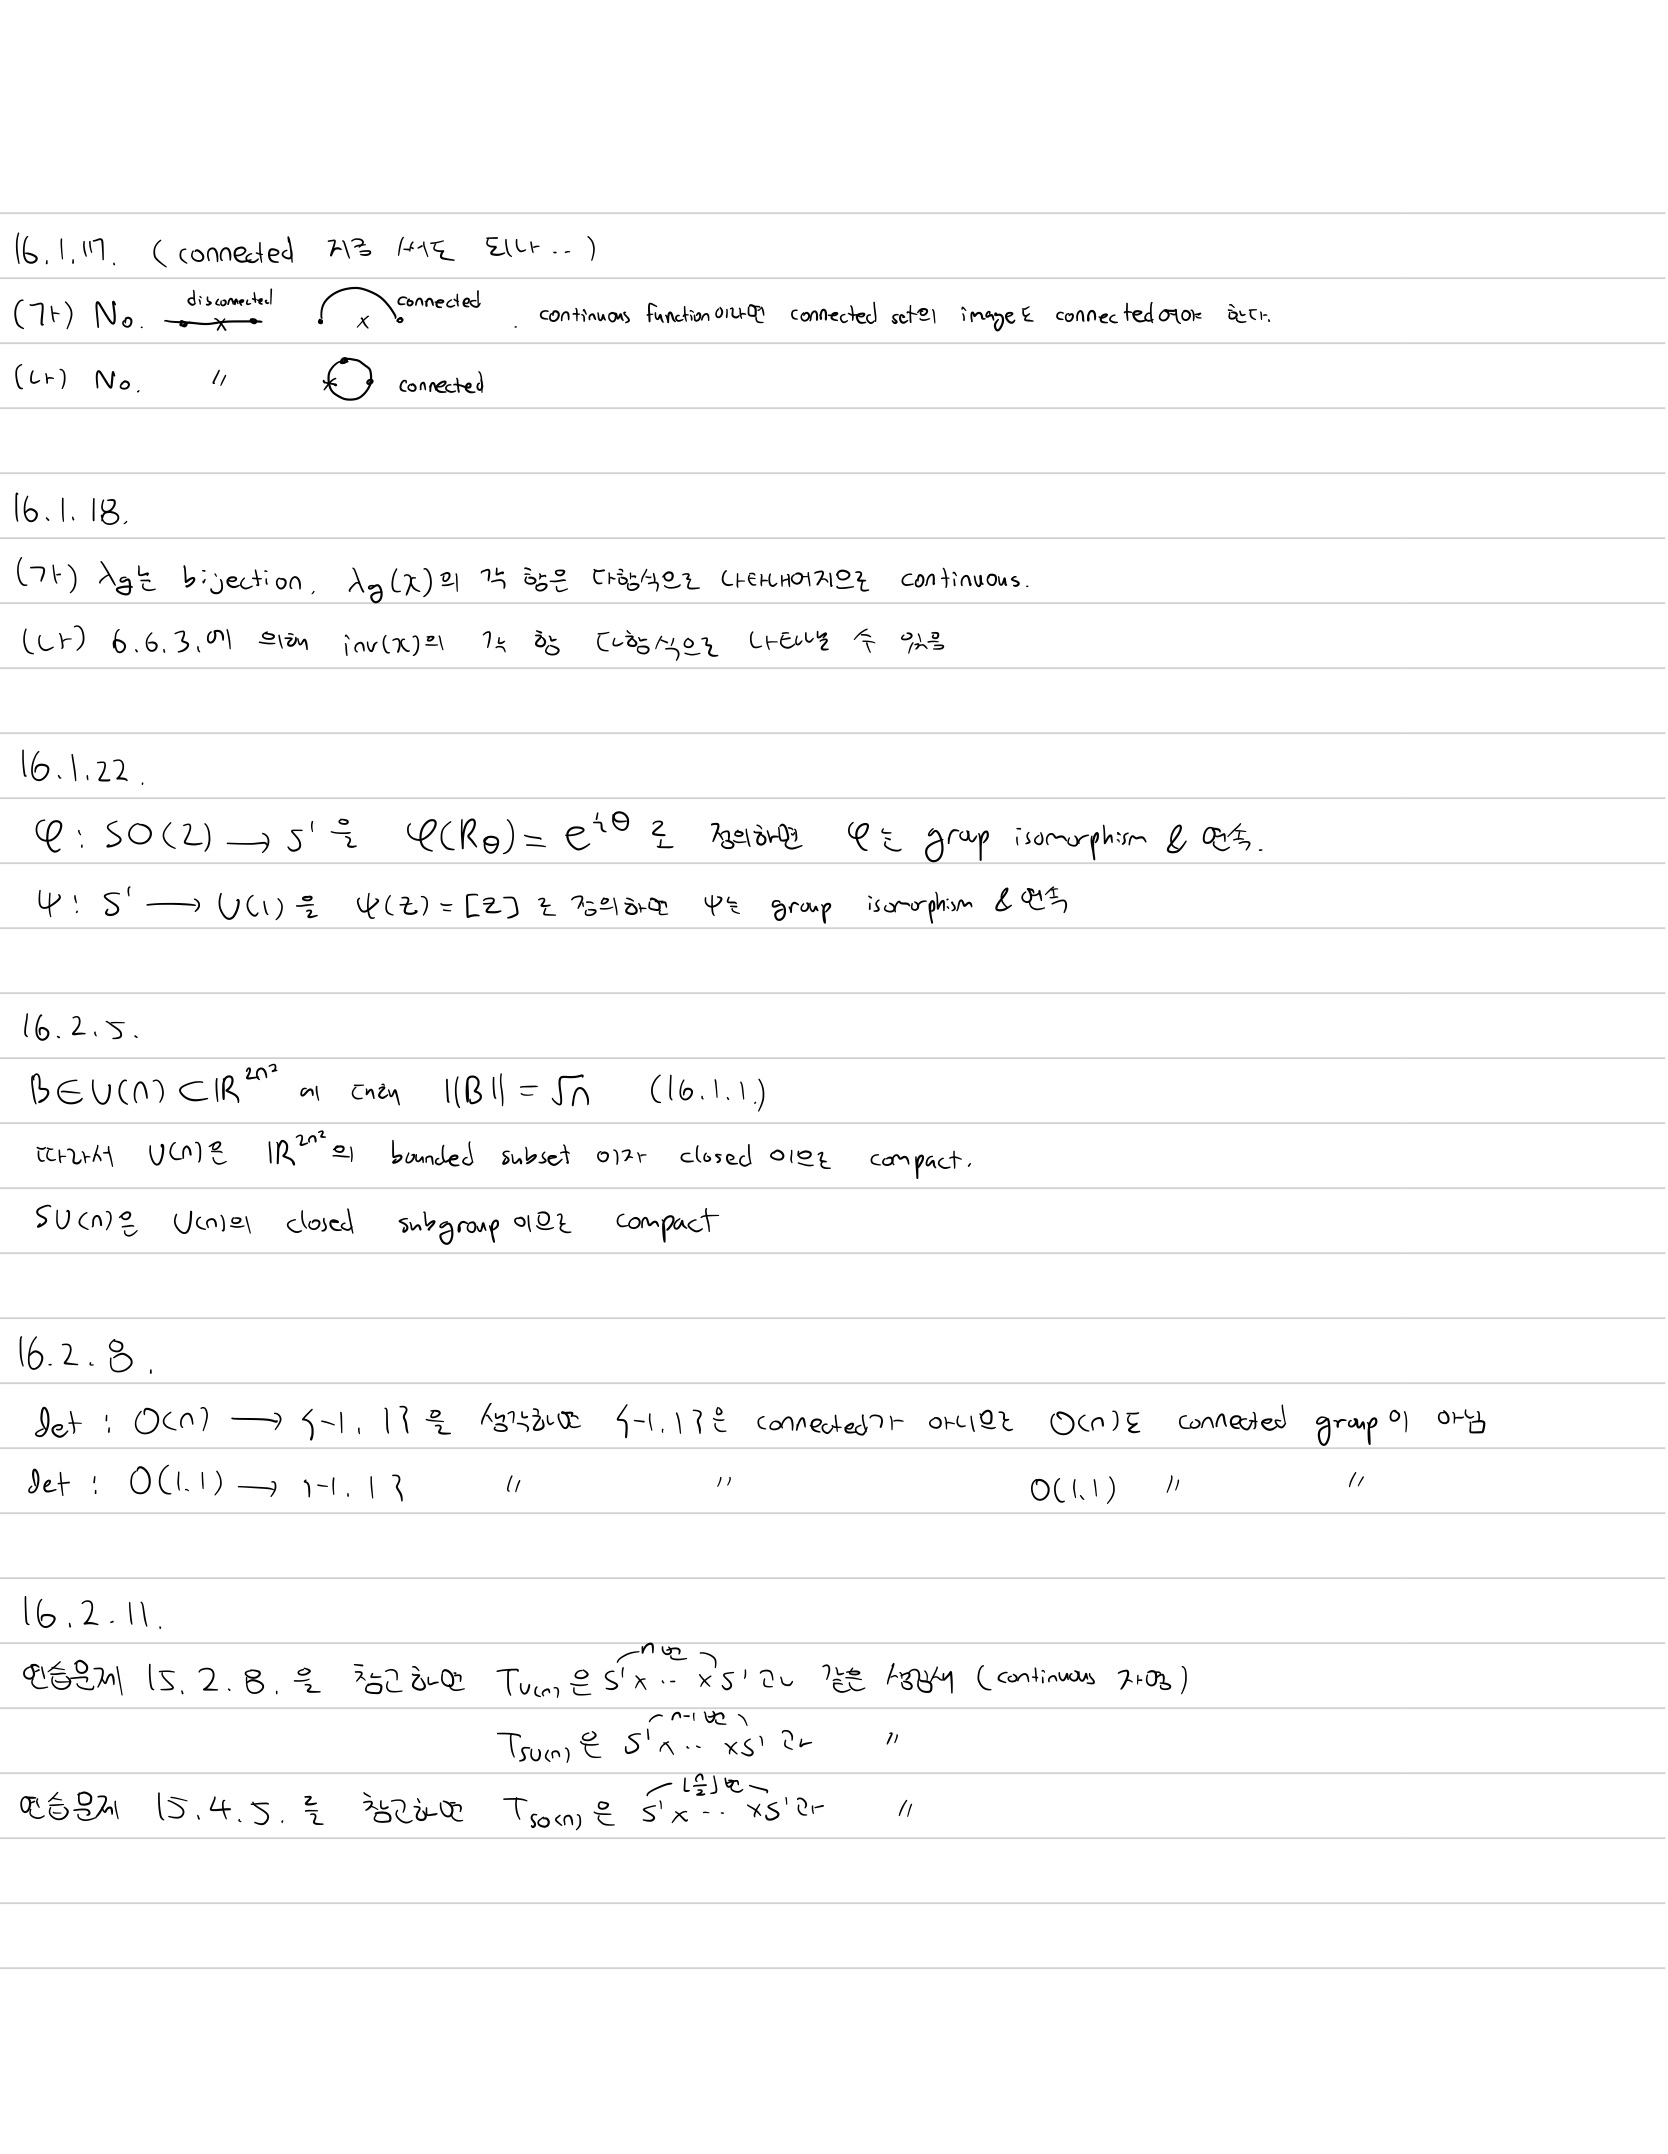 16.1.17. (connected 지금 써도 되나..)
(가) No. disconnected connected . continuous function이라면 connected set의 image도 connected여야 한다.
(나) No. 〃 connected
16.1.18.
(가) λg는 bijection. λg(x)의 각 항은 다항식으로 나타내어지므로 continuous.
(나) 6.6.3.에 의해 inv(x)의 각 항 다항식으로 나타낼 수 있음
16.1.22.
φ : SO(2) → S¹ 을 φ(Rθ) = e^{iθ} 로 정의하면 φ는 group isomorphism & 연속.
ψ : S¹ → U(1) 을 ψ(z) = [z] 로 정의하면 ψ는 group isomorphism & 연속
16.2.5.
B∈U(n)⊂ℝ^{2n²} 에 대해 ||B|| = √n (16.1.1.)
따라서 U(n)은 ℝ^{2n²}의 bounded subset 이자 closed 이므로 compact.
SU(n)은 U(n)의 closed subgroup 이므로 compact
16.2.8.
det : O(n) → {-1, 1} 을 생각하면 {-1, 1}은 connected가 아니므로 O(n)도 connected group이 아님
det : O(1,1) → {-1, 1} 〃 〃 O(1,1) 〃 〃
16.2.11.
연습문제 15.2.8. 을 참고하면 T_{U(n)}은 S¹×‥×S¹과 같은 생김새 (continuous 자명) n번
T_{SU(n)}은 S¹×‥×S¹과 〃 n-1번
연습문제 15.4.5. 를 참고하면 T_{SO(n)}은 S¹×‥×S¹과 〃 ⌊n/2⌋번